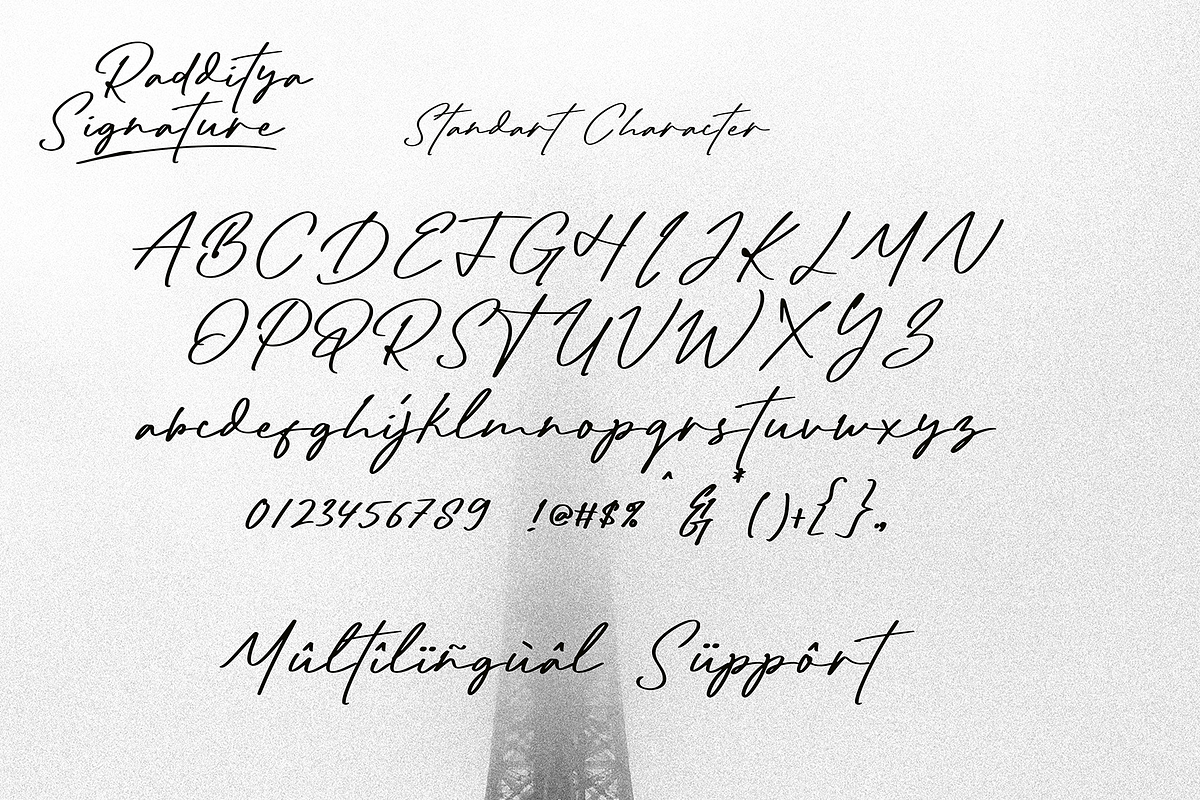 Radditya
Signature
Standart Character
ABCDEFGHIJKLMN
OPQRSTUVWXYZ
abcdefghijklmnopqrstuvwxyz
0123456789 !@#$%^&*()+{}.,
Mûltîlïñgùâl Süppôrt